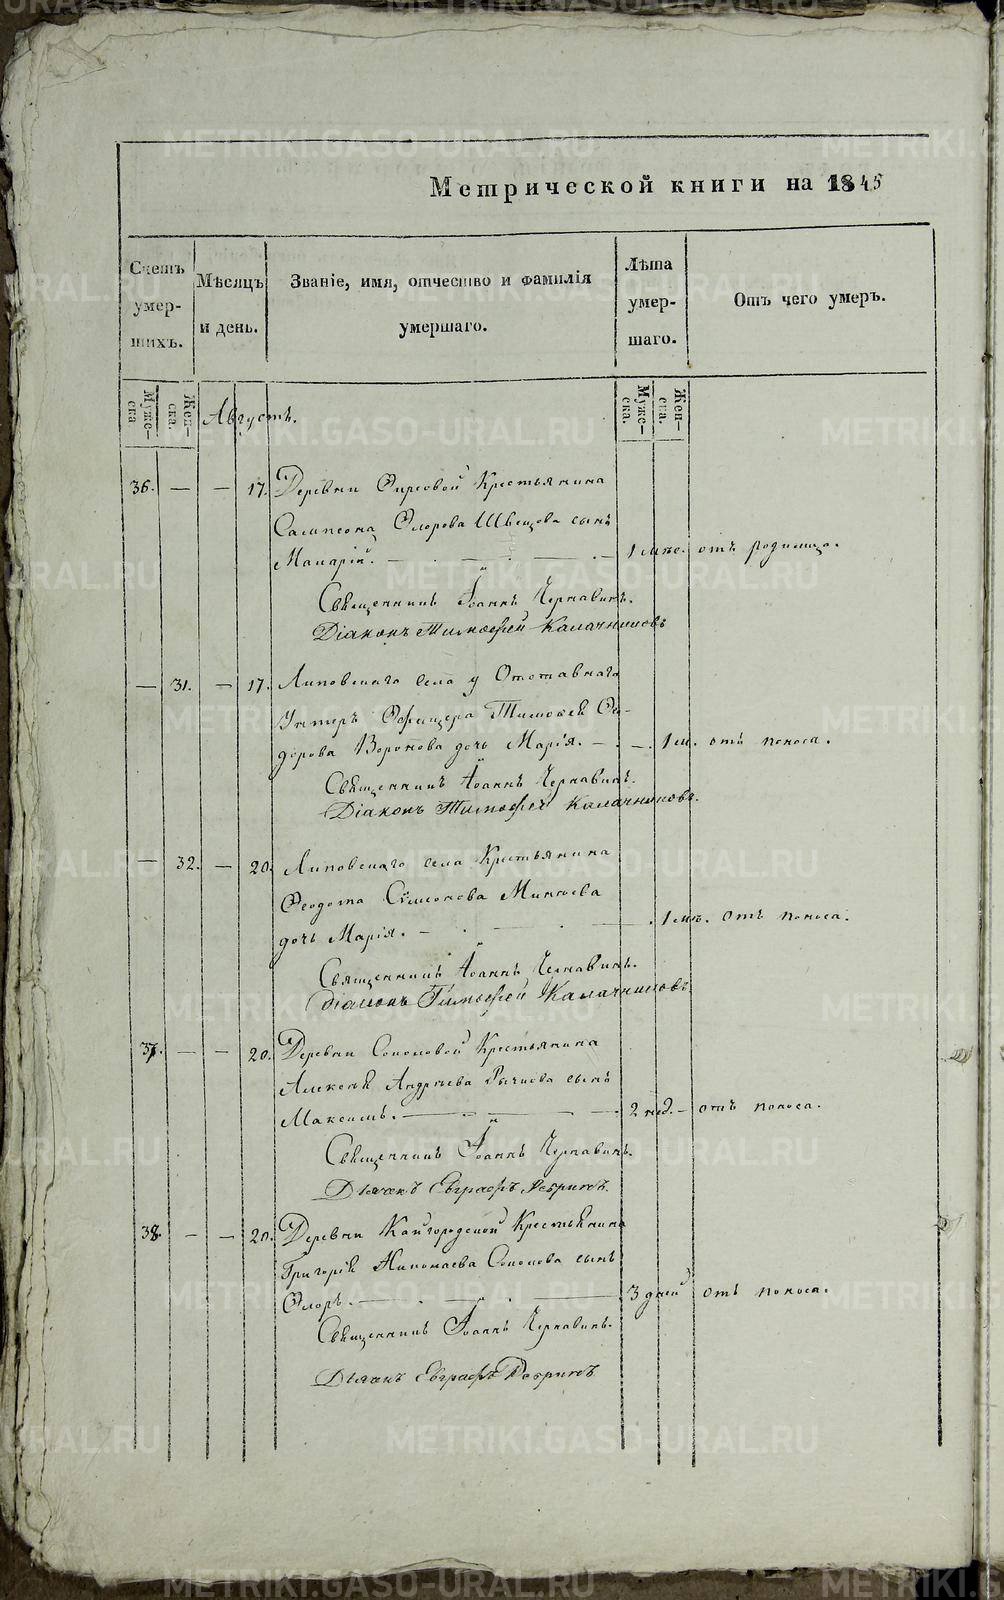 Метрической книги на 1845
Счетъ умер-шихъ.
Мѣсяцъ и день.
Званіе, имя, отчество и фамилія умершаго.
Лѣта умер-шаго.
Отъ чего умеръ.
Муже-ска
Жен-ска.
Августъ.
Муже-ска.
Жен-ска.
36. — — 17. Деревни Фирсовой Крестьянина
Сампсона Флорова Швецова сынъ
Макарій. — 1 мѣс. отъ родимца.
Священникъ Іоаннъ Чернавинъ.
Діаконъ Тимофей Калачниковъ
— 31. — 17. Липовскаго села у Отставнаго
Унтеръ Офицера Тимофея Фе-
дорова Воронова дочь Марія. — 1 м. отъ поноса.
Священникъ Іоаннъ Чернавинъ.
Діаконъ Тимофей Калачниковъ.
— 32. — 20. Липовскаго села Крестьянина
Феодота Симеонова Минѣева
дочь Марія. — 1 мѣ. отъ поноса.
Священникъ Іоаннъ Чернавинъ.
Діаконъ Тимофей Калачниковъ.
37. — — 20. Деревни Соколовой Крестьянина
Алексѣя Андреева Рычкова сынъ
Максимъ. — 2 нед. — отъ поноса.
Священникъ Іоаннъ Чернавинъ.
Дьячекъ Евграфъ
38. — — 20. Деревни Кайгородской Крестьянина
Григорія Николаева Соколова сынъ
Флоръ. — 3 дней отъ поноса.
Священникъ Іоаннъ Чернавинъ.
Дьячекъ Евграфъ
METRIKI.GASO-URAL.RU